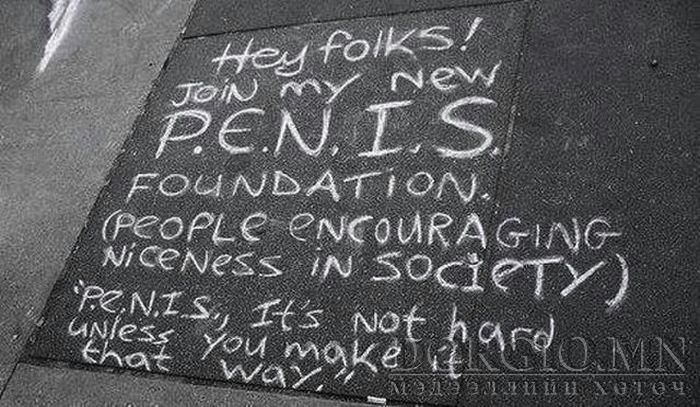 Hey folks!
JOIN my new
P.E.N.I.S.
FOUNDATION.
(PEOPLE ENCOURAGING
NICENESS IN SOCIETY)
"P.E.N.I.S., IT'S NOT hard
UNLESS YOU MAKE IT
that WAY."
DORGIO.MN
мэдээллийн хөтөч